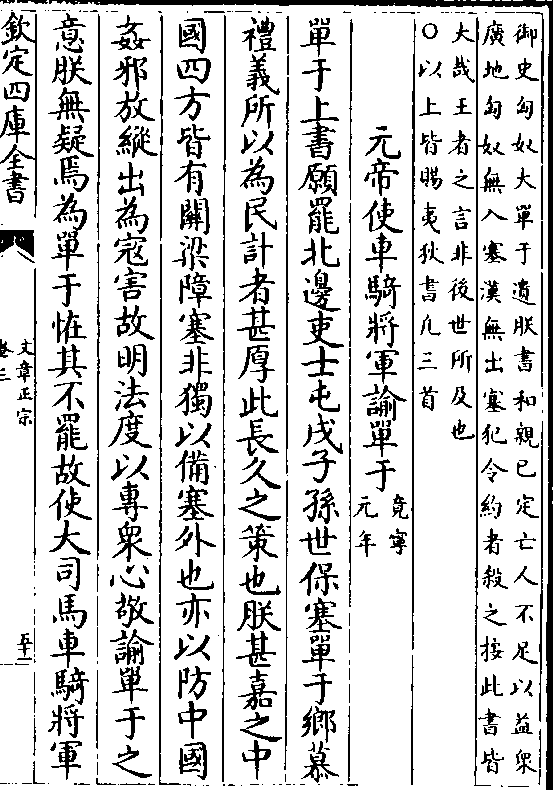 御史匈奴大單于遺朕書和親已定亡人不足以益衆
廣地匈奴無入塞漢無出塞犯令約者殺之按此書皆
大哉王者之言非後世所及也
○以上皆賜夷狄書凡三首
元帝使車騎將軍諭單于
竟寧
元年
單于上書願罷北邊吏士屯戍子孫世保塞單于鄉慕
禮義所以為民計者甚厚此長久之策也朕甚嘉之中
國四方皆有關梁障塞非獨以備塞外也亦以防中國
姦邪放縱出為寇害故明法度以專衆心敬諭單于之
意朕無疑焉為單于怪其不罷故使大司馬車騎將軍
欽定四庫全書
文章正宗
卷三
五十二